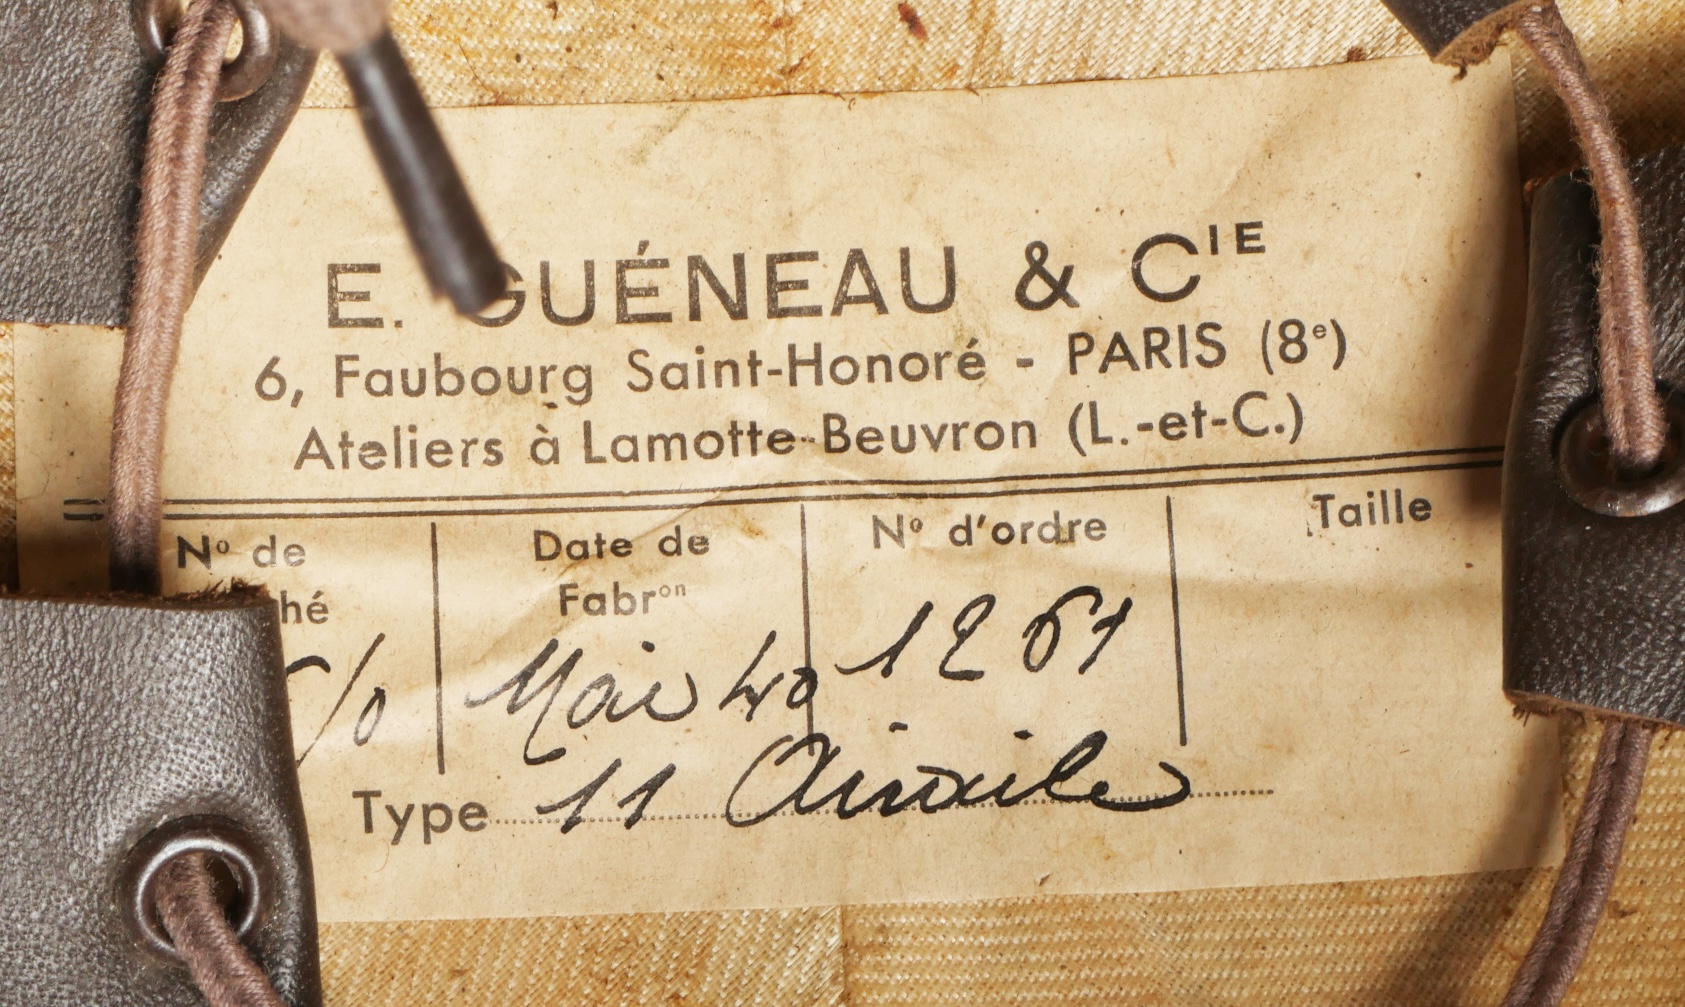 E. GUÉNEAU & CIE
6, Faubourg Saint-Honoré - PARIS (8e)
Ateliers à Lamotte-Beuvron (L.-et-C.)
No de
Date de
No d'ordre
Taille
Fabron
Mai 40
1261
Type 11 Airaile